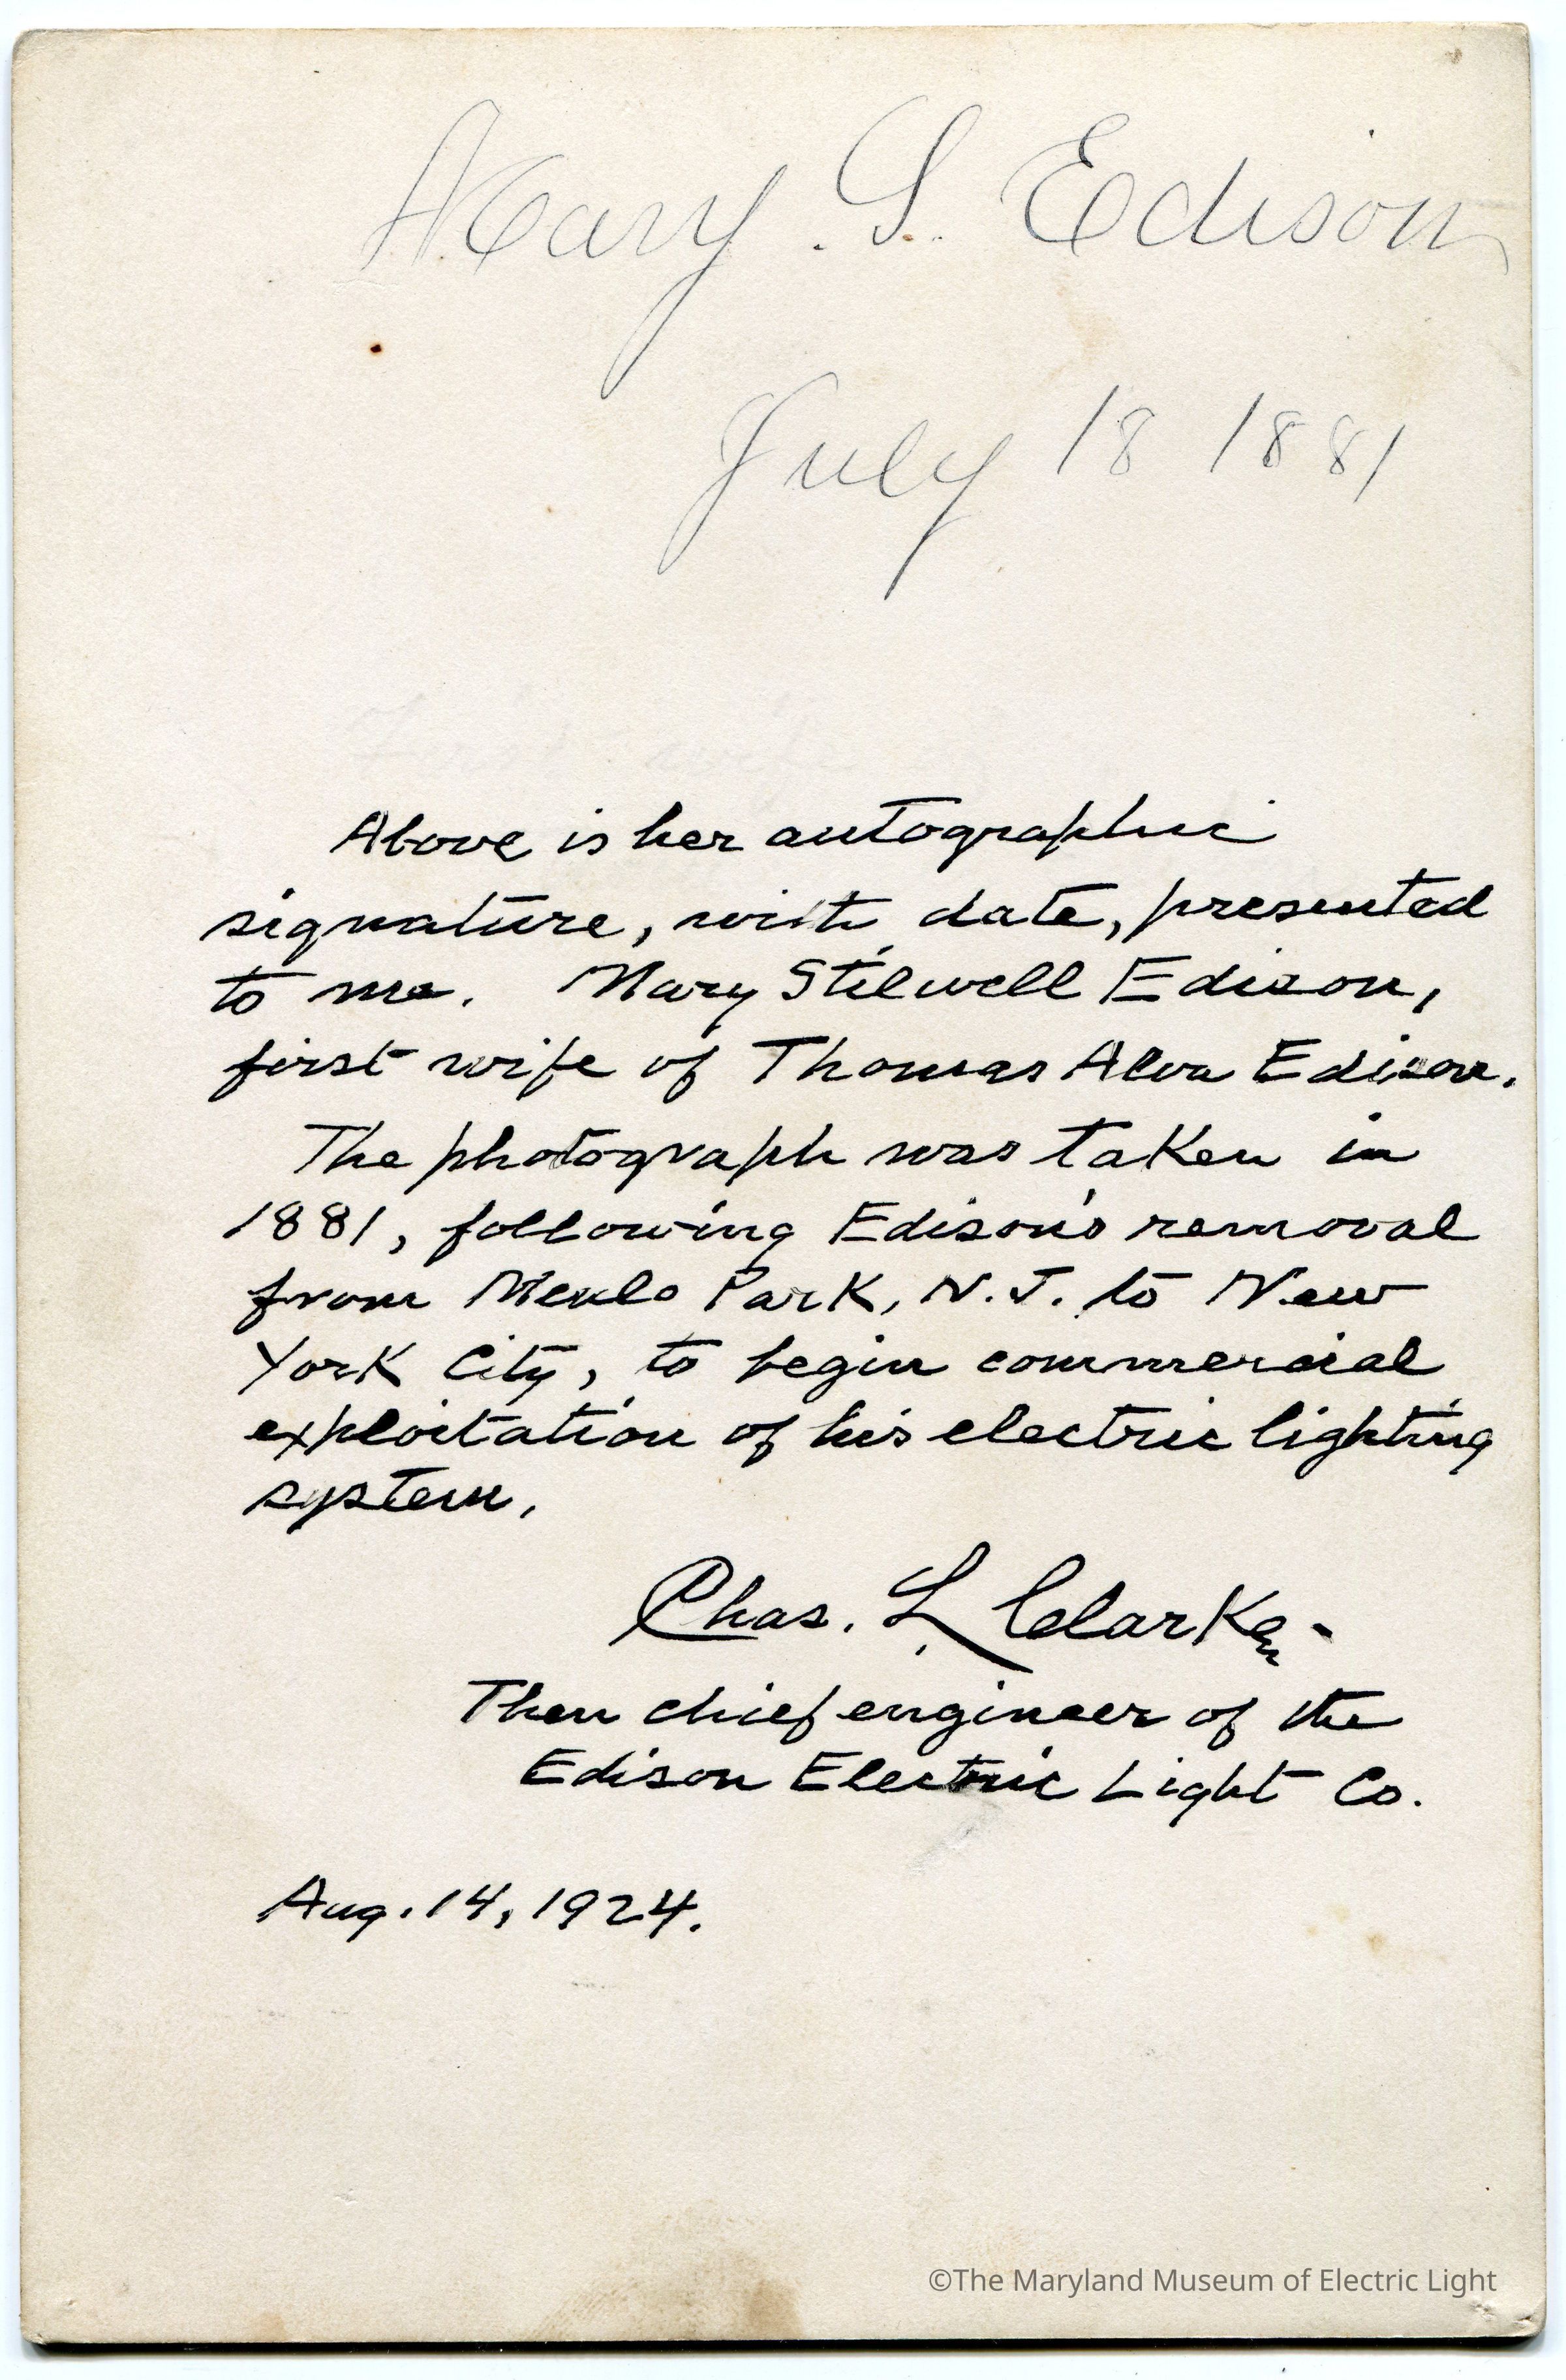 Mary . S. Edison
July 18 1881
Above is her autographic
signature, with date, presented
to me. Mary Stilwell Edison,
first wife of Thomas Alva Edison.
The photograph was taken in
1881, following Edison's removal
from Menlo Park, N.J. to New
York City, to begin commercial
exploitation of his electric lighting
system.
Chas. L. Clarke -
Then chief engineer of the
Edison Electric Light Co.
Aug. 14, 1924.
©The Maryland Museum of Electric Light